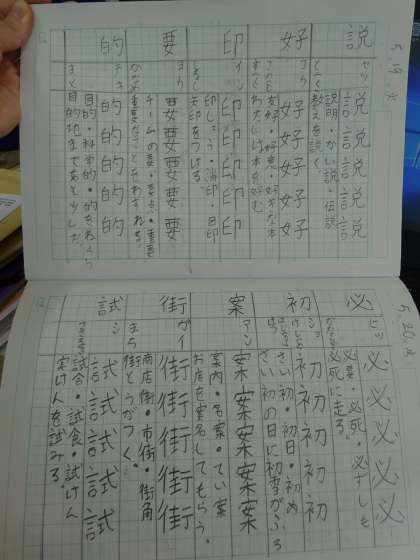 5.19.火
説
セツ
とく
説説説説説
説明・かい説・伝説
教えを説く。
好
コウ
このむ
すく
好好好好好
友好・好意・好きな本
わたしは本を好む
印
イン
しるし
印印印印印
印しょう・消印・目印
矢印をつける。
要
ヨウ
かなめ
要要要要要
チームの要・要点・重要
重要なことをわすれる。
的
テキ
まと
的的的的的
目的・科学的・的をねらう
目的地まであと少しだ。
5.20.水
必
ヒツ
かならず
必必必必必
必要・必死・必ずしも
必死に走る。
初
ショ
はじめ
はじめて
はつ
初初初初初
さい初・初日・初め
さい初の日に初雪がふる
案
アン
案案案案案
案内・名案・てい案
お店を案内してもらう。
街
ガイ
まち
街街街街街
商店街・市街・街角
街とうがつく。
試
シ
試試試試試
試合・試食・試けん
実けんを試みる。